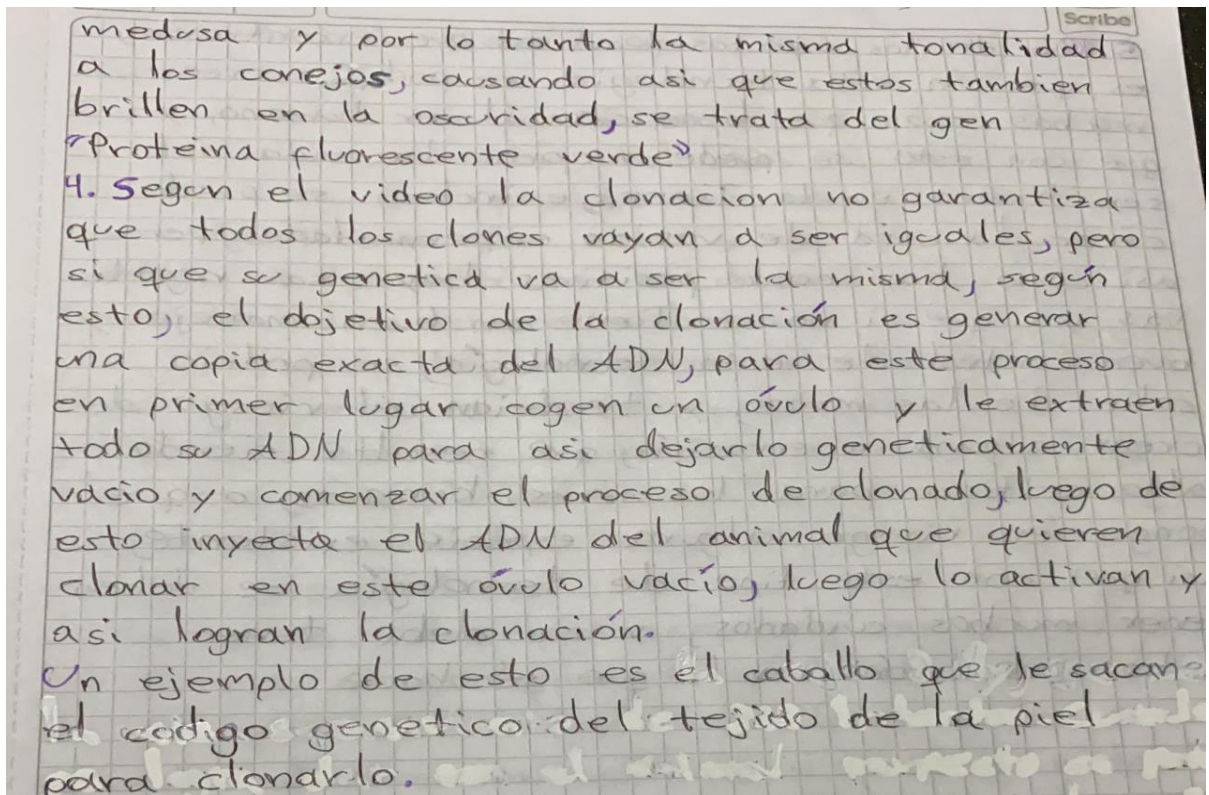 Scribe
medusa y por lo tanto la misma tonalidad
a los conejos, causando asi que estos tambien
brillen en la oscuridad, se trata del gen
"Proteina fluorescente verde"
4. Segun el video la clonacion no garantiza
que todos los clones vayan a ser iguales, pero
si que su genetica va a ser la misma, según
esto, el objetivo de la clonación es generar
una copia exacta del ADN, para este proceso
en primer lugar cogen un óvulo y le extraen
todo su ADN para asi dejarlo geneticamente
vacio y comenzar el proceso de clonado, luego de
esto inyecta el ADN del animal que quieren
clonar en este óvulo vacío, luego lo activan y
asi logran la clonación.
Un ejemplo de esto es el caballo que le sacan
el codigo genetico del tejido de la piel
para clonarlo.